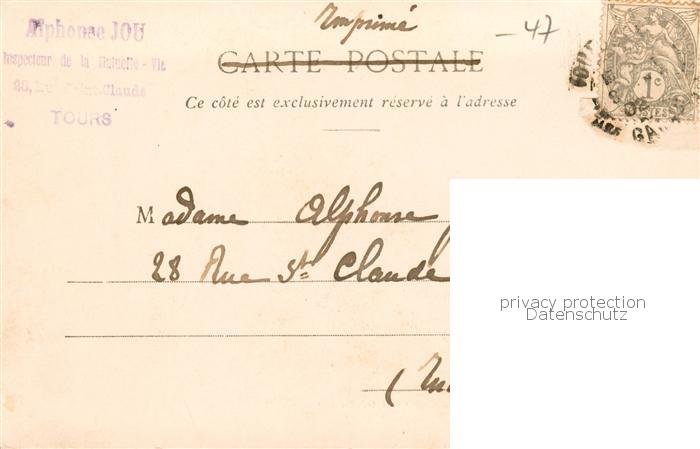 Alphonse JOU
Inspecteur de la Mutuelle-Vie
28, Rue Saint-Claude
TOURS
Imprimé
-47
CARTE POSTALE
Ce côté est exclusivement réservé à l'adresse
1c
POSTES
GA
Madame Alphonse
28 Rue St Claude
(In
privacy protection
Datenschutz